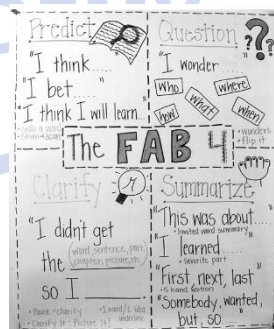 Predict
"I think.....
I bet.... "
"I think I will learn...
The FAB 4
Question
"I wonder ....."
who
where
what
how
when
• wonders
• flip it
Clarify
"I didn't get
the (word, sentence, part,
chapter, picture, etc.)
so I
• Pause to clarify
• 1 word / 1 idea
underline
• Clarify It: Picture It!
Summarize
"This was about.....
• limited word summary
I learned.....
• favorite part
"First, next, last"
• 5 hand motion
"Somebody, wanted,
but, so ....."